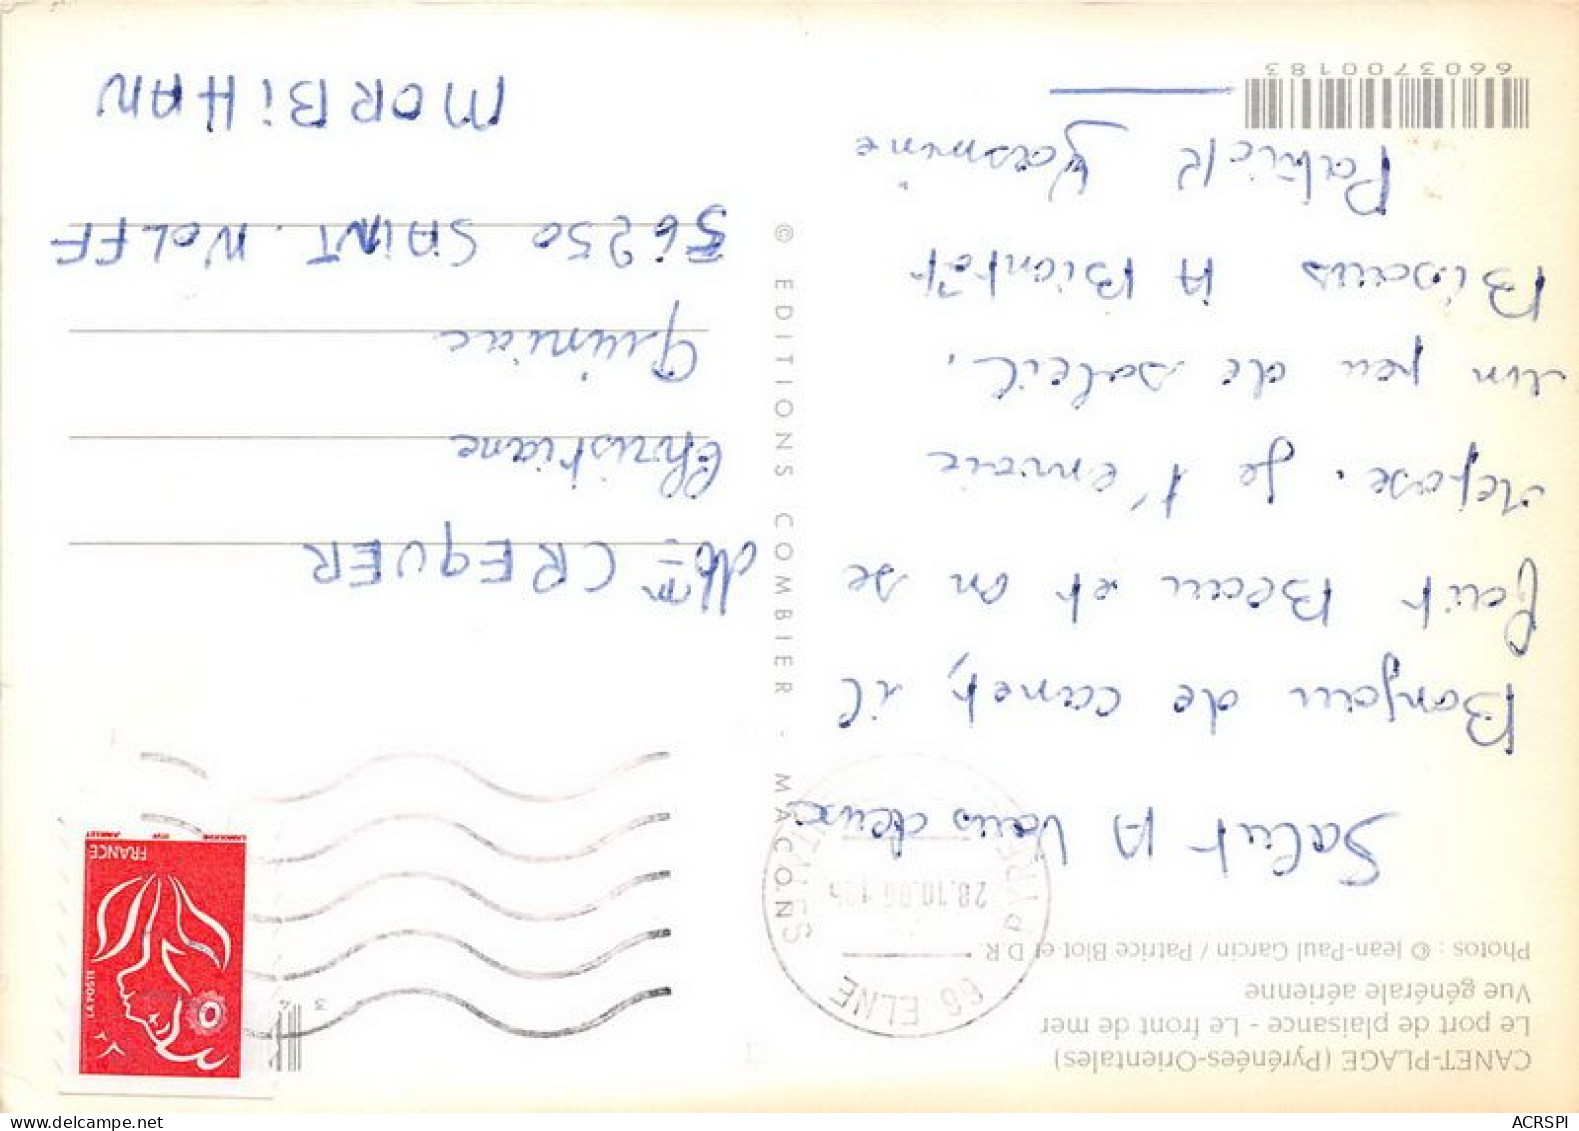 CANET-PLAGE (Pyrénées-Orientales)
Le port de plaisance - Le front de mer
Vue générale aérienne
Photos : © Jean-Paul Garcin / Patrice Blot et D R
Salut A vous deux
Bonjour de canet, il
fait Beau et on se
repose. Je t'envoie
un peu de soleil.
Bisous A Bientôt
Patrick Yasmine
6603700183
© EDITIONS COMBIER - MACON
66 ELNE
PYRENEES
28.10.06
FRANCE
LA POSTE
LAMOUCHE
ITVF
JUMELET
Mme CREQUER
Christiane
Quiniac
56250 SAINT. NOLFF
MORBIHAN
ACRSPI